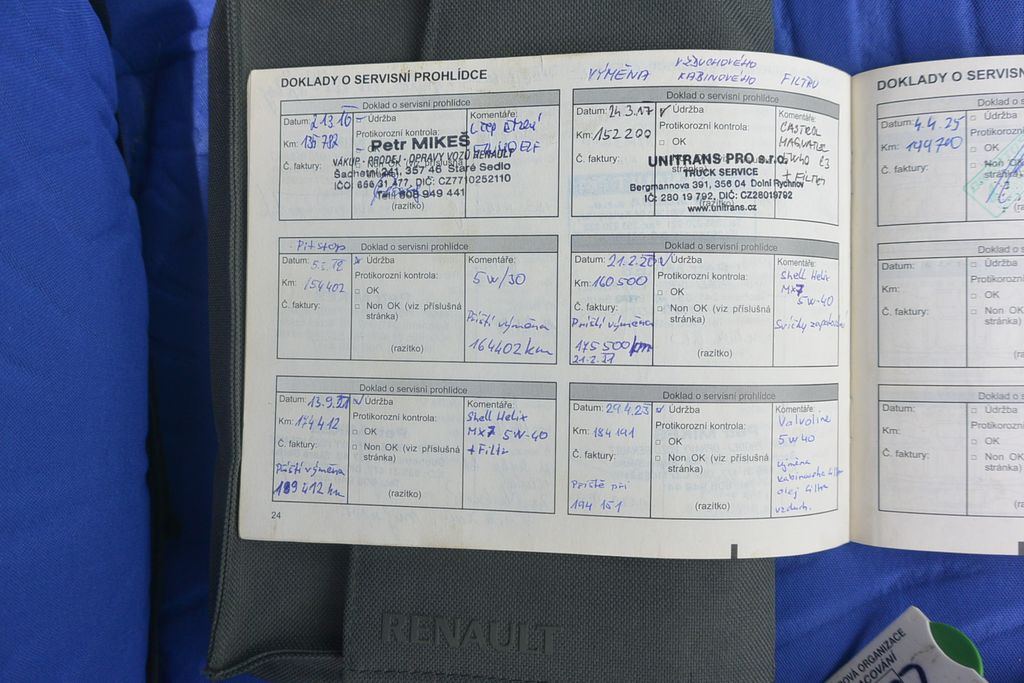 DOKLADY O SERVISNÍ PROHLÍDCE
VÝMĚNA VZDUCHOVÉHO
KABINOVÉHO FILTRU
Doklad o servisní prohlídce
Datum:
Údržba
Komentáře:
Km: 136 782
Protikorozní kontrola:
Petr MIKEŠ
Č. faktury:
VÁKUP - PRODEJ - OPRAVY VOZŮ RENAULT
241, 357 46 Staré Sedlo
DIČ: CZ7710252110
949 441
(razítko)
Doklad o servisní prohlídce
Datum: 24.3.17 ✓ Údržba
Komentáře:
Km: 152 200
Protikorozní kontrola:
CASTROL
MAGNATEC
□ OK
+ FILTR
Č. faktury:
UNITRANS PRO s.r.o.
TRUCK SERVICE
Bergmannova 391, 356 04 Dolní Rychnov
IČ: 280 19 792, DIČ: CZ28019792
www.unitrans.cz
Pitstop
Doklad o servisní prohlídce
Datum:
Údržba
Komentáře:
Km: 154402
Protikorozní kontrola:
5W/30
□ OK
Č. faktury:
□ Non OK (viz příslušná
stránka)
Příští výměna
164402 km
(razítko)
Doklad o servisní prohlídce
Datum: 21.2.20 ✓ Údržba
Komentáře:
Km: 160 500
Protikorozní kontrola:
Shell Helix
MX7
5W-40
□ OK
Č. faktury:
□ Non OK (viz příslušná
stránka)
Příští výměna
Svíčky zapalování
175 500 km
21.2.21
(razítko)
Doklad o servisní prohlídce
Datum: 13.9.21 ✓ Údržba
Komentáře:
Km: 174 412
Protikorozní kontrola:
Shell Helix
MX7 5W-40
+ Filtr
□ OK
Č. faktury:
□ Non OK (viz příslušná
stránka)
Příští výměna
189 412 km
(razítko)
Doklad o servisní prohlídce
Datum: 29.4.23 ✓ Údržba
Komentáře:
Km: 184 191
Protikorozní kontrola:
Valvoline
5W40
□ OK
Č. faktury:
□ Non OK (viz příslušná
stránka)
výměna
olej filtr
vzduch.
Příště při
194 151
(razítko)
24
DOKLADY O SERVISN
Doklad o
Datum: 4.4.25
Údržba
Km: 199700
Protikorozní
□ OK
Č. faktury:
□ Non OK
stránka)
Doklad o
Datum:
□ Údržba
Km:
Protikorozní
□ OK
Č. faktury:
□ Non OK
stránka)
Doklad o
Datum:
□ Údržba
Km:
Protikorozní
□ OK
Č. faktury:
□ Non OK
stránka)
RENAULT
OVÁ ORGANIZACE
COVÁNÍ